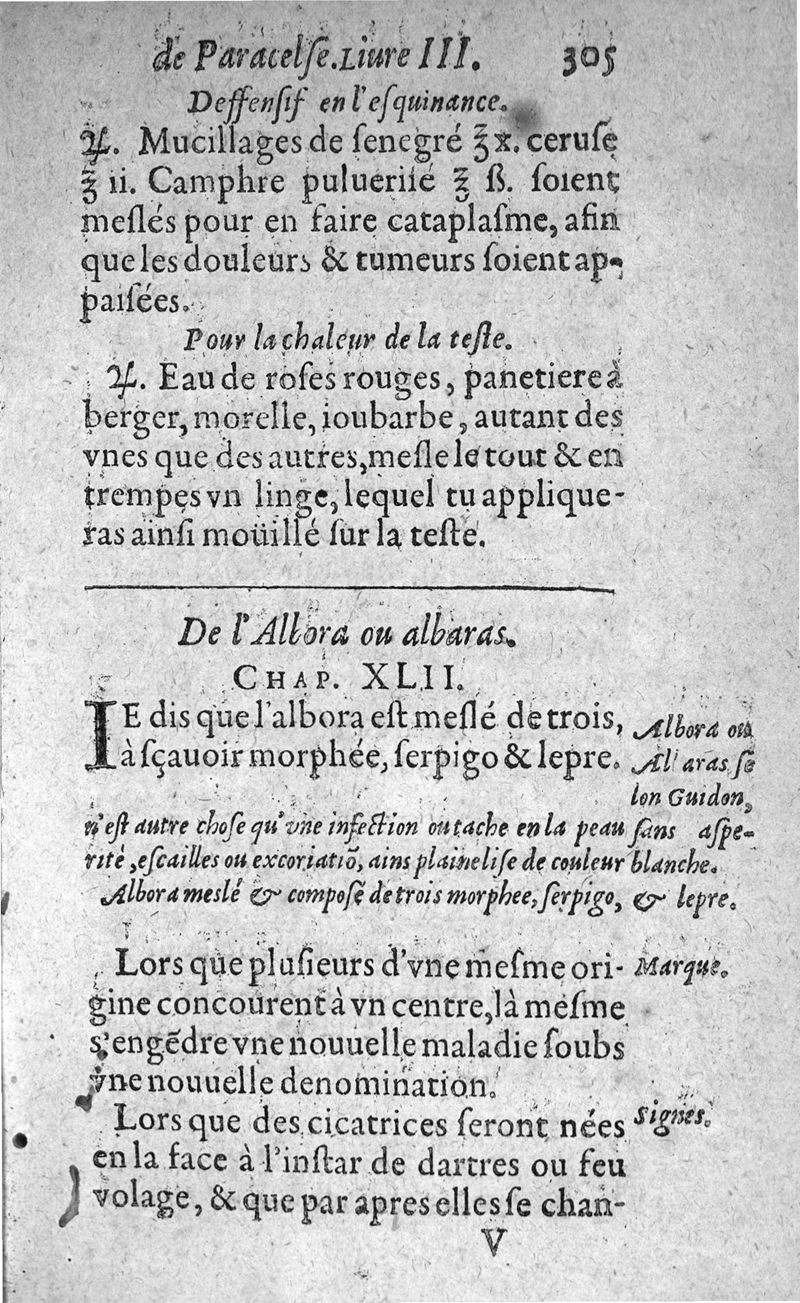 de Paracelſe. Liure III. 305
Deffenſif en l'eſquinance.
♃. Mucillages de fenegré ℥x. ceruſe
℥ ii. Camphre pulueriſé ℥ ß. ſoient
meſlés pour en faire cataplaſme, afin
que les douleurs & tumeurs ſoient ap-
paiſées.
Pour la chaleur de la teſte.
♃. Eau de roſes rouges, panetiere à
berger, morelle, ioubarbe, autant des
vnes que des autres, meſle le tout & en
trempes vn linge, lequel tu applique-
ras ainſi moüillé ſur la teſte.
De l'Albora ou albaras.
CHAP. XLII.
IE dis que l'albora eſt meſlé de trois,
à ſçauoir morphée, ſerpigo & lepre.
Albora ou
Albaras ſe
lon Guidon,
n'eſt autre choſe qu'vne infection ou tache en la peau ſans aſpe-
rité, eſcailles ou excoriatiō, ains plaine liſe de couleur blanche.
Albora meslé & compoſé de trois morphee, ſerpigo, & lepre.
Lors que pluſieurs d'vne meſme ori-
Marque.
gine concourent à vn centre, là meſme
s'engēdre vne nouuelle maladie ſoubs
vne nouuelle denomination.
Lors que des cicatrices ſeront nées
Signes.
en la face à l'inſtar de dartres ou feu
volage, & que par apres elles ſe chan-
V